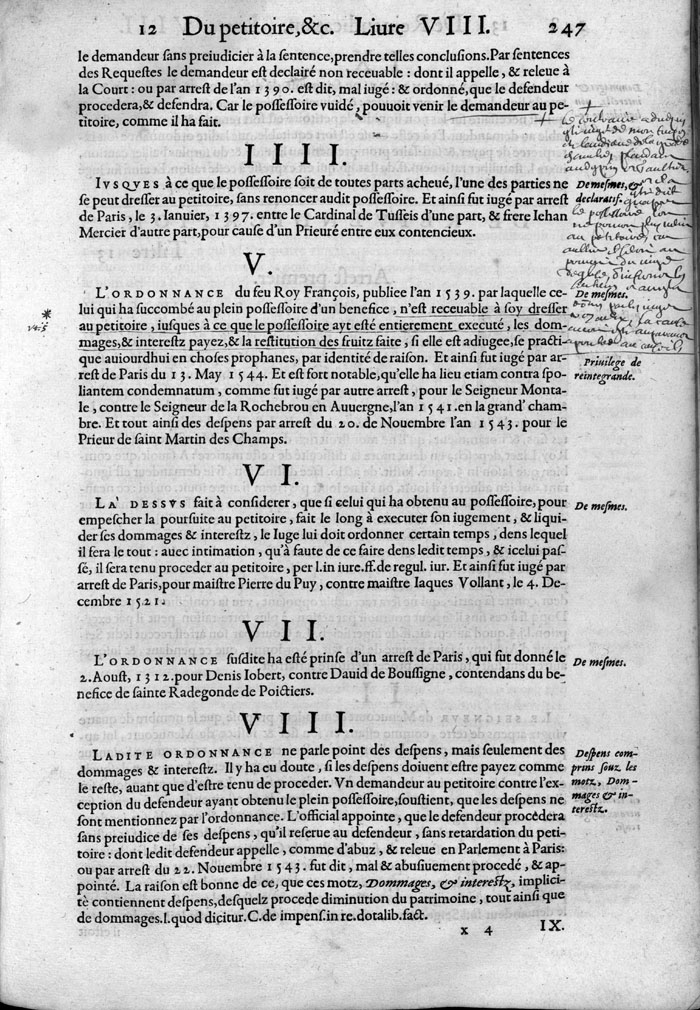 12 Du petitoire, &c. Liure VIII. 247
le demandeur sans preiudicier à la sentence, prendre telles conclusions. Par sentences
des Requestes le demandeur est declairé non receuable : dont il appelle, & releue à
la Court : ou par arrest de l'an 1390. est dit, mal iugé : & ordonné, que le defendeur
procedera, & defendra. Car le possessoire vuidé, pouuoit venir le demandeur au pe-
titoire, comme il ha fait.
IIII.
IVSQVES à ce que le possessoire soit de toutes parts acheué, l'une des parties ne
se peut dresser au petitoire, sans renoncer audit possessoire. Et ainsi fut iugé par arrest
de Paris, le 3. Ianuier, 1397. entre le Cardinal de Tusseis d'une part, & frere Iehan
Mercier d'autre part, pour cause d'un Prieuré entre eux contencieux.
De mesmes, &
declaratif.
V.
L'ORDONNANCE du feu Roy François, publiee l'an 1539. par laquelle ce-
lui qui ha succombé au plein possessoire d'un benefice, n'est receuable à soy dresser
au petitoire, iusques à ce que le possessoire ayt esté entierement executé, les dom-
mages, & interestz payez, & la restitution des fruitz faite, si elle est adiugee, se practi-
que auiourdhui en choses prophanes, par identité de raison. Et ainsi fut iugé par ar-
rest de Paris du 13. May 1544. Et est fort notable, qu'elle ha lieu etiam contra spo-
liantem condemnatum, comme fut iugé par autre arrest, pour le Seigneur Monta-
le, contre le Seigneur de la Rochebrou en Auuergne, l'an 1541. en la grand' cham-
bre. Et tout ainsi des despens par arrest du 20. de Nouembre l'an 1543. pour le
Prieur de saint Martin des Champs.
De mesmes.
Priuilege de
reintegrande.
VI.
LA' DESSVS fait à considerer, que si celui qui ha obtenu au possessoire, pour
empescher la poursuite au petitoire, fait le long à executer son iugement, & liqui-
der ses dommages & interestz, le Iuge lui doit ordonner certain temps, dens lequel
il fera le tout : auec intimation, qu'à faute de ce faire dens ledit temps, & icelui pas-
sé, il sera tenu proceder au petitoire, per l. in iure. ff. de regul. iur. Et ainsi fut iugé par
arrest de Paris, pour maistre Pierre du Puy, contre maistre Iaques Vollant, le 4. De-
cembre 1521.
De mesmes.
VII.
L'ORDONNANCE susdite ha esté prinse d'un arrest de Paris, qui fut donné le
2. Aoust, 1312. pour Denis Iobert, contre Dauid de Boussigne, contendans du be-
nefice de sainte Radegonde de Poictiers.
De mesmes.
VIII.
LADITE ORDONNANCE ne parle point des despens, mais seulement des
dommages & interestz. Il y ha eu doute, si les despens doiuent estre payez comme
le reste, auant que d'estre tenu de proceder. Vn demandeur au petitoire contre l'ex-
ception du defendeur ayant obtenu le plein possessoire, soustient, que les despens ne
sont mentionnez par l'ordonnance. L'official appointe, que le defendeur procedera
sans preiudice de ses despens, qu'il reserue au defendeur, sans retardation du peti-
toire : dont ledit defendeur appelle, comme d'abuz, & releue en Parlement à Paris:
ou par arrest du 22. Nouembre 1543. fut dit, mal & abusiuement procedé, & ap-
pointé. La raison est bonne de ce, que ces motz, Dommages, & interestz, implici-
tè contiennent despens, desquelz procede diminution du patrimoine, tout ainsi que
de dommages. l. quod dicitur. C. de impens. in re. dotalib. fact.
Despens com-
prins souz les
motz, Dom-
mages & in-
terestz.
x 4 IX.